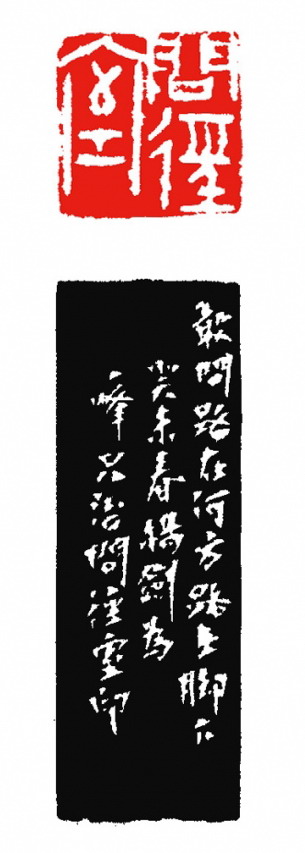 問徑
室
敢問路在何方路在脚下
癸未春楊劍為
一峰兄治問徑室印